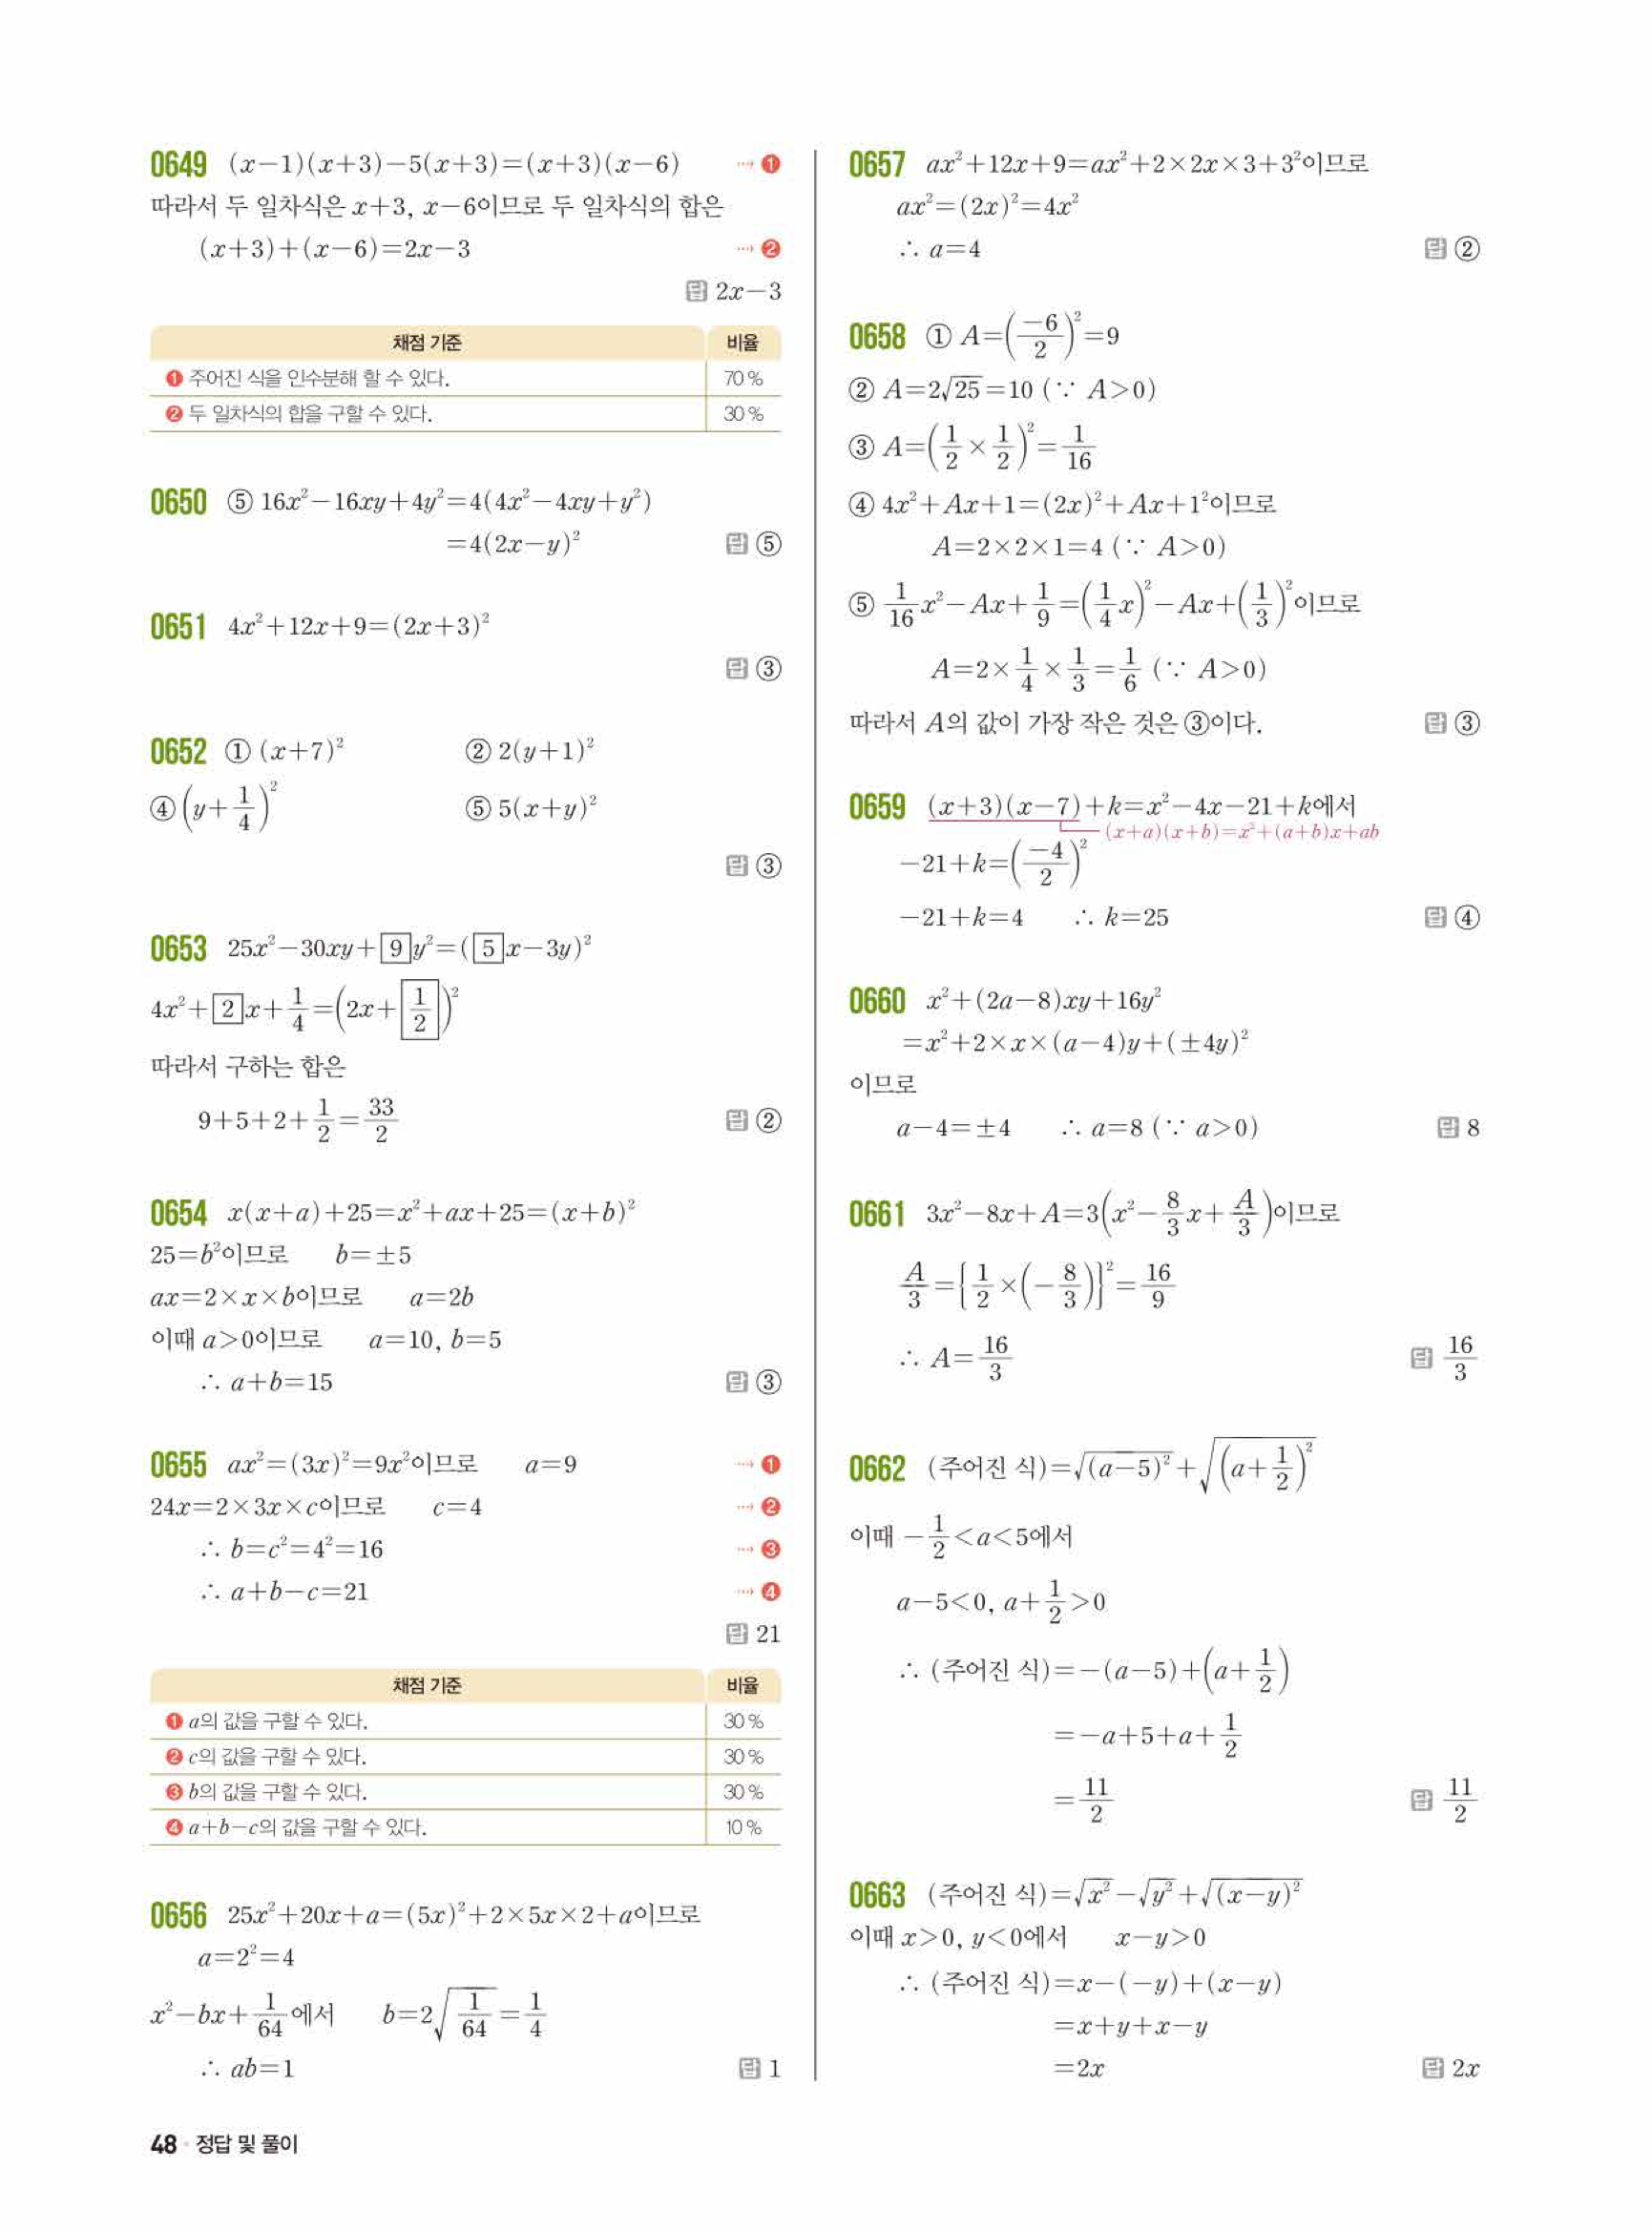 0649 (x-1)(x+3)-5(x+3)=(x+3)(x-6) ⋯→ ❶
따라서 두 일차식은 x+3, x-6이므로 두 일차식의 합은
(x+3)+(x-6)=2x-3 ⋯→ ❷
답 2x-3
채점 기준 비율
❶ 주어진 식을 인수분해 할 수 있다. 70 %
❷ 두 일차식의 합을 구할 수 있다. 30 %
0650 ⑤ 16x²-16xy+4y²=4(4x²-4xy+y²)
=4(2x-y)² 답 ⑤
0651 4x²+12x+9=(2x+3)²
답 ③
0652 ① (x+7)² ② 2(y+1)²
④ (y+1/4)² ⑤ 5(x+y)²
답 ③
0653 25x²-30xy+[9]y²=([5]x-3y)²
4x²+[2]x+1/4=(2x+[1/2])²
따라서 구하는 합은
9+5+2+1/2=33/2 답 ②
0654 x(x+a)+25=x²+ax+25=(x+b)²
25=b²이므로 b=±5
ax=2×x×b이므로 a=2b
이때 a>0이므로 a=10, b=5
∴ a+b=15 답 ③
0655 ax²=(3x)²=9x²이므로 a=9 ⋯→ ❶
24x=2×3x×c이므로 c=4 ⋯→ ❷
∴ b=c²=4²=16 ⋯→ ❸
∴ a+b-c=21 ⋯→ ❹
답 21
채점 기준 비율
❶ a의 값을 구할 수 있다. 30 %
❷ c의 값을 구할 수 있다. 30 %
❸ b의 값을 구할 수 있다. 30 %
❹ a+b-c의 값을 구할 수 있다. 10 %
0656 25x²+20x+a=(5x)²+2×5x×2+a이므로
a=2²=4
x²-bx+1/64에서 b=2√(1/64)=1/4
∴ ab=1 답 1
0657 ax²+12x+9=ax²+2×2x×3+3²이므로
ax²=(2x)²=4x²
∴ a=4 답 ②
0658 ① A=(-6/2)²=9
② A=2√25=10 (∵ A>0)
③ A=(1/2×1/2)²=1/16
④ 4x²+Ax+1=(2x)²+Ax+1²이므로
A=2×2×1=4 (∵ A>0)
⑤ 1/16x²-Ax+1/9=(1/4x)²-Ax+(1/3)²이므로
A=2×1/4×1/3=1/6 (∵ A>0)
따라서 A의 값이 가장 작은 것은 ③이다. 답 ③
0659 (x+3)(x-7)+k=x²-4x-21+k에서
(x+a)(x+b)=x²+(a+b)x+ab
-21+k=(-4/2)²
-21+k=4 ∴ k=25 답 ④
0660 x²+(2a-8)xy+16y²
=x²+2×x×(a-4)y+(±4y)²
이므로
a-4=±4 ∴ a=8 (∵ a>0) 답 8
0661 3x²-8x+A=3(x²-8/3x+A/3)이므로
A/3={1/2×(-8/3)}²=16/9
∴ A=16/3 답 16/3
0662 (주어진 식)=√(a-5)²+√(a+1/2)²
이때 -1/2<a<5에서
a-5<0, a+1/2>0
∴ (주어진 식)=-(a-5)+(a+1/2)
=-a+5+a+1/2
=11/2 답 11/2
0663 (주어진 식)=√x²-√y²+√(x-y)²
이때 x>0, y<0에서 x-y>0
∴ (주어진 식)=x-(-y)+(x-y)
=x+y+x-y
=2x 답 2x
48 · 정답 및 풀이